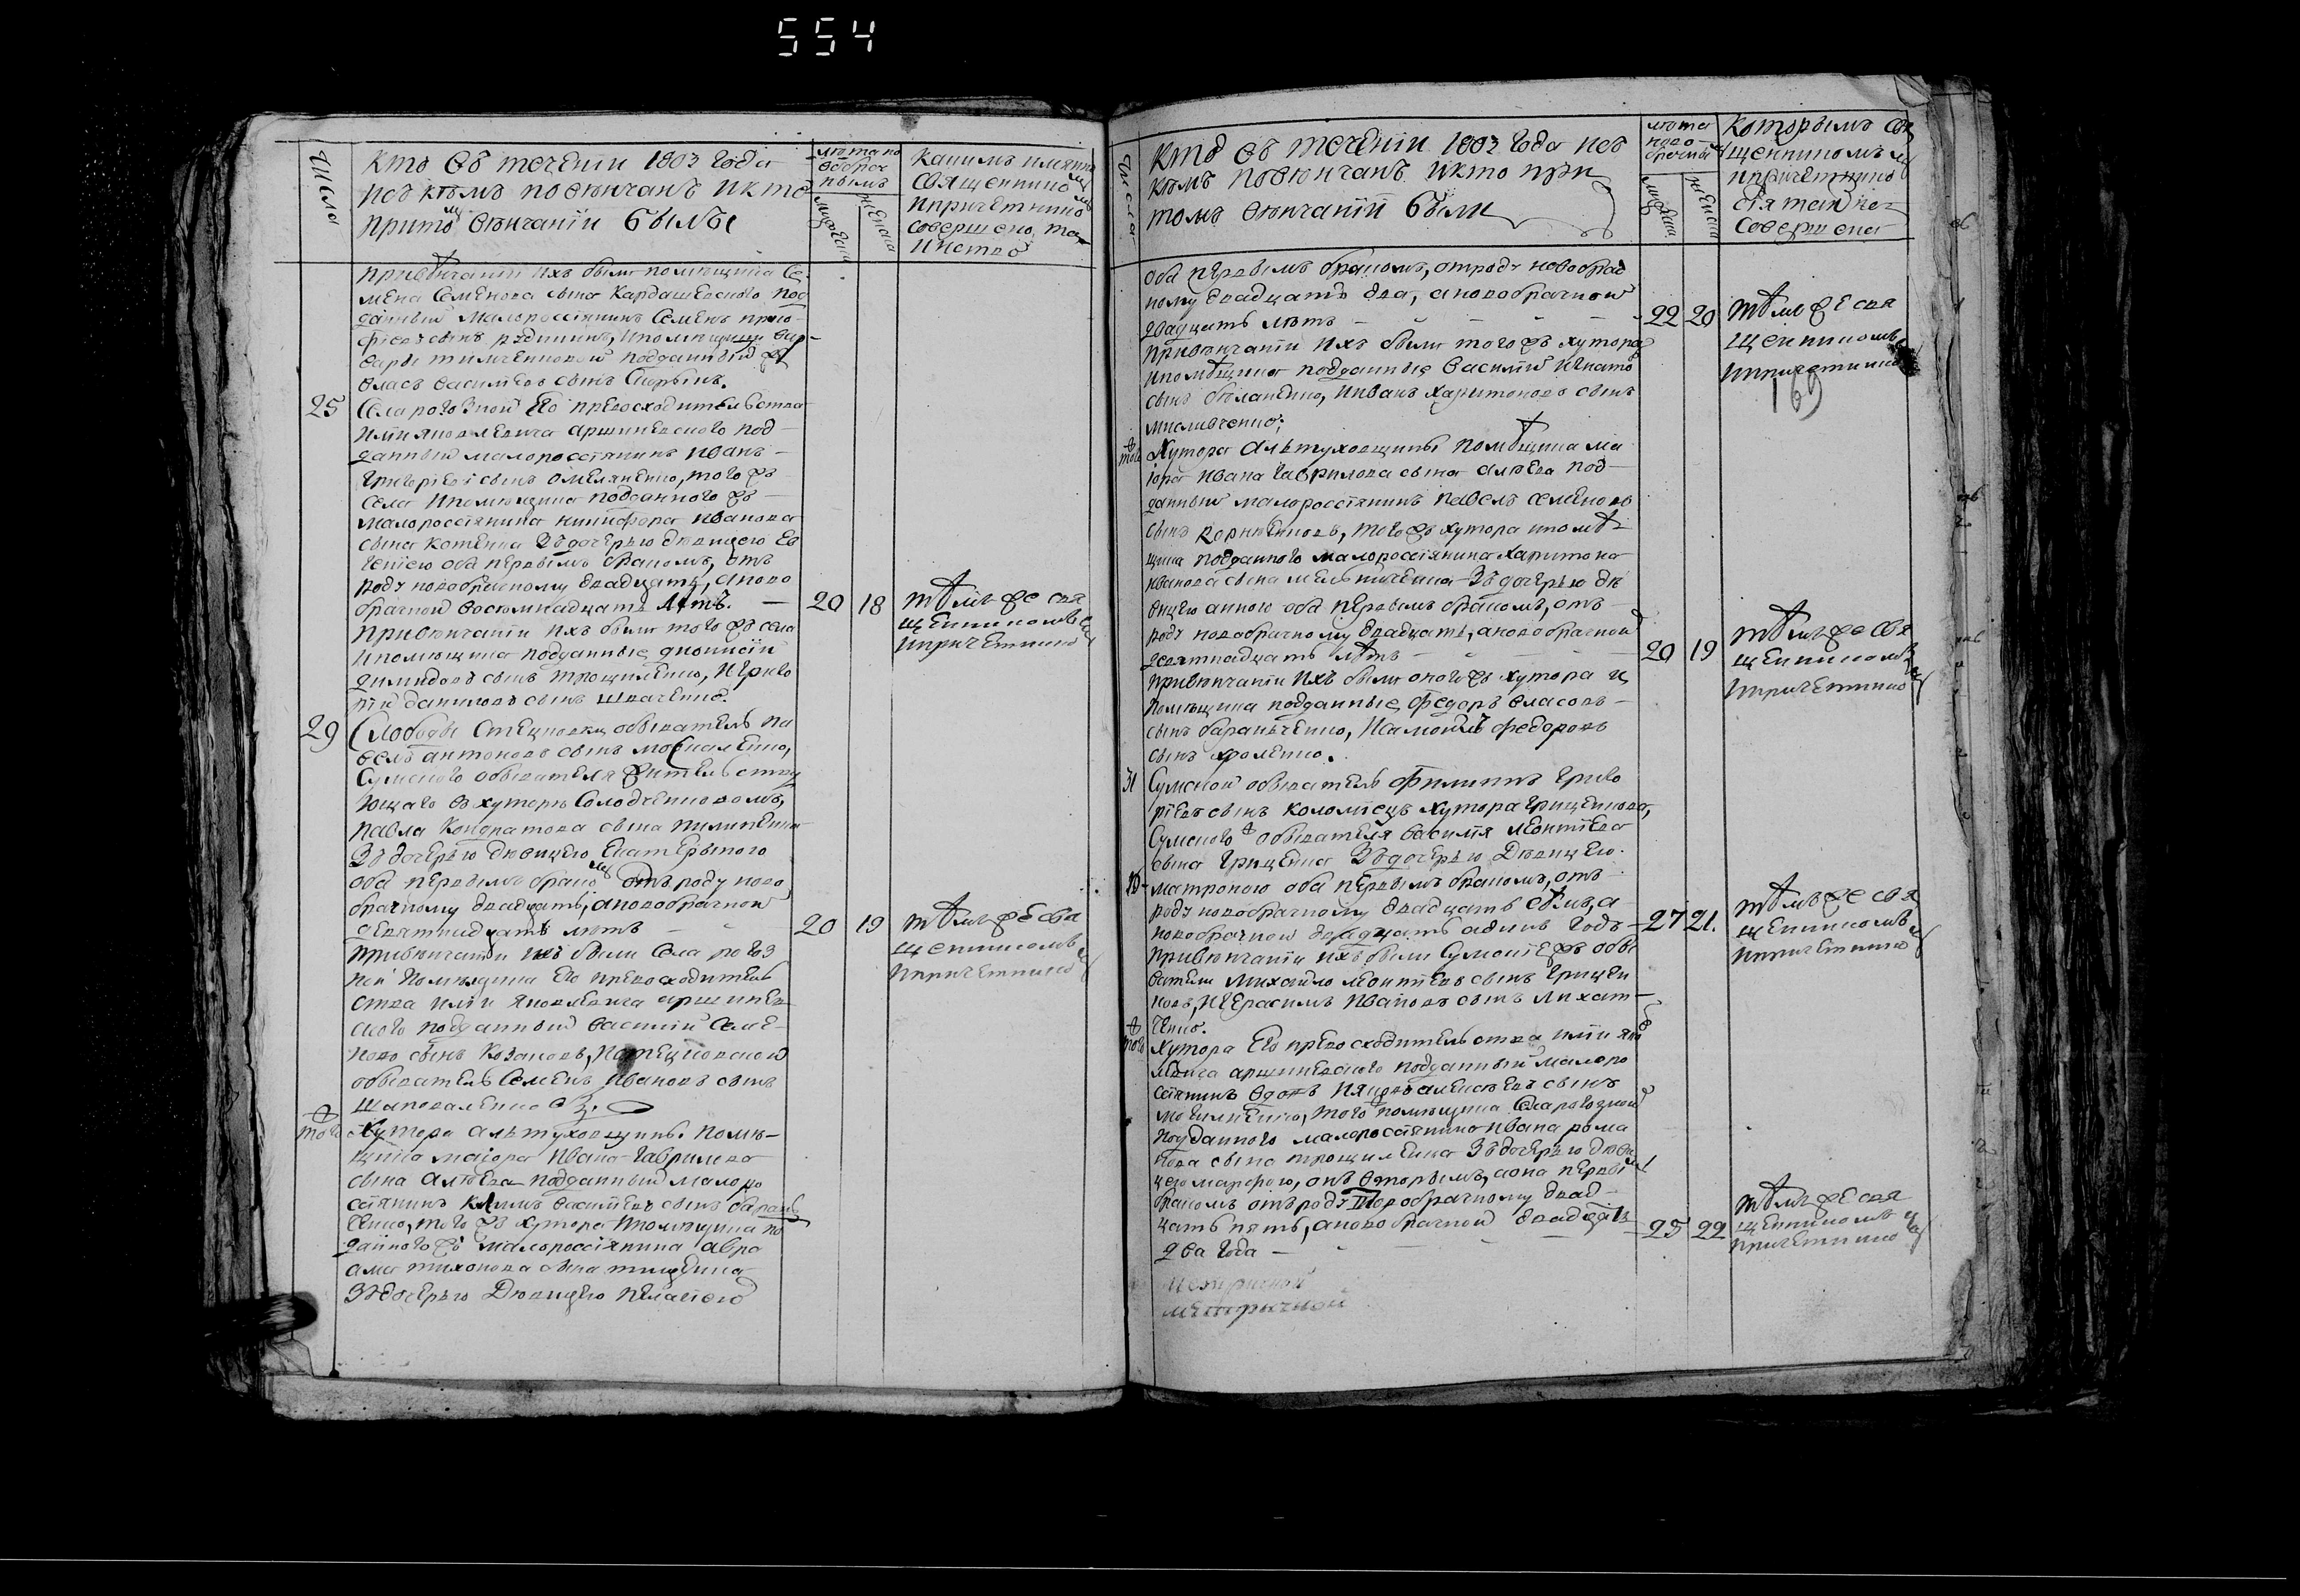 554
Число
Кто въ теченіи 1803 Года
Нос кѣмъ повѣнчанъ и кто
притомъ вѣнчаніи былъ
лѣта но
вобрач
нымъ
мужеска
женска
Какимъ имянно
священнико
мъ
и причетнико
мъ
совершено та
инство
привѣнчаніи ихъ были помѣщика Се
мена Семенова сына Кардашевскаго под
данный малороссіянинъ Семенъ
сынъ и помѣщицы вар
вары подданный же
власъ василіевъ сынъ
25
Села роговной Его превосходительства
иліи яковлевича аршиневского под
данный малороссіянинъ иванъ
григоріевъ сынъ омеляненко, того жъ
села и помѣщика подданного жъ
малороссіянина никифора иванова
сына котенка зъ дочерью дѣвицею Ев
геніею оба первымъ бракомъ, отъ
роду новобрачному двадцать, а ново
брачной восемнадцать лѣтъ.
20
18
тѣмъ же свя
щенникомъ
и причетнико
мъ
привѣнчаніи ихъ были того жъ села
и помѣщика подданные діонисій
димидовъ сынъ трощименко, и григо
рій даниловъ сынъ шваченко.
29
Слободы Стецковки обыватель па
велъ антоновъ сынъ
Сумского обывателя жительству
ющаго въ хуторѣ Солодченковомъ,
павла Кондратова сына пилипенка
зъ дочерью дѣвицею Екатериною
оба первымъ брако
мъ
отъ роду ново
брачному двадцать, а новобрачной
девятнадцать лѣтъ
20
19
тѣмъ же свя
щенникомъ
и причетнико
мъ
привѣнчаніи ихъ были Села роговъ
ной помѣщика Его превосходитель
ства иліи яковлевича аршинев
ского подданный василій Семе
новъ сынъ Козаковъ, и стецковской
обыватель Семенъ ивановъ сынъ
шаповаленко
того
Хутора алътуховщины помѣ
щика маіора ивана гаврилова
сына алѣева подданный малоро
сіянинъ климъ василіевъ сынъ баран
ченко, того жъ хутора и помѣщика по
данного жъ малороссіянина авра
ама тихонова сына тищенка
зъ дочерью дѣвицею пелагіею
Числа
Кто въ теченіи 1803 Года нес
кѣмъ повѣнчанъ и кто при
томъ вѣнчаніи были
лѣта
ново
брачны
мужеска
женска
Которымъ свя
щенникомъ
и причетнико
мъ
совершена
оба первымъ бракомъ, отроду новобрач
ному двадцать два, а новобрачной
двадцать лѣтъ
22
20
тѣмъ же свя
щенникомъ
и причетнико
169
привѣнчаніи ихъ были того жъ хутора
и помѣщика подданные василій игнато
сынъ и иванъ харитоновъ сынъ
того
Хутора Алътуховщины помѣщика ма
іора ивана гаврилова сына алѣева под
данный малороссіянинъ павелъ семеновъ
сынъ корнѣенковъ, того жъ хутора и помѣ
щика подданного малороссіянина харитона
иванова сына мельниченка зъ дочерью дѣ
вицею анною оба первымъ бракомъ, отъ
роду новобрачному двадцать, а новобрачной
девятнадцать лѣтъ
20
19
тѣмъ же свя
щенникомъ
и причетнико
мъ
привѣнчаніи ихъ были оного жъ хутора и
помѣщика подданные, федоръ власовъ
сынъ бараньченко, и самойлъ федоровъ
сынъ
31
Сумской обыватель Филиппъ григо
ріевъ сынъ коломіецъ хутора грищенкова,
Сумского обывателя василія леонтіева
сына грищенка зъ дочерью дѣвицею
матроною оба первымъ бракомъ, отъ
роду новобрачному двадцать семь, а
новобрачной двадцать адинъ годъ
27
21.
тѣмъ же свя
щенникомъ
и причетнико
мъ
привѣнчаніи ихъ были Сумскіе жъ обы
ватели михайло леонтіевъ сынъ грищен
ковъ, и герасимъ ивановъ сынъ лихат
ченко.
того
Хутора Его превосходительства иліи яко
влевича аршиневского подданный малоро
сіянинъ вдовъ алексѣевъ сынъ
могилненко, того помѣщика Села роговной
подданного малороссіянина ивана рома
нова сына трощименка зъ дочерью дѣви
цею марфою, онъ вторымъ, а она первы
мъ
бракомъ отъ роду новобрачному двад
цать пять, а новобрачной двадцать
два года
25
22
тѣмъ же свя
щенникомъ
и причетнико
мъ
метрической
метричной